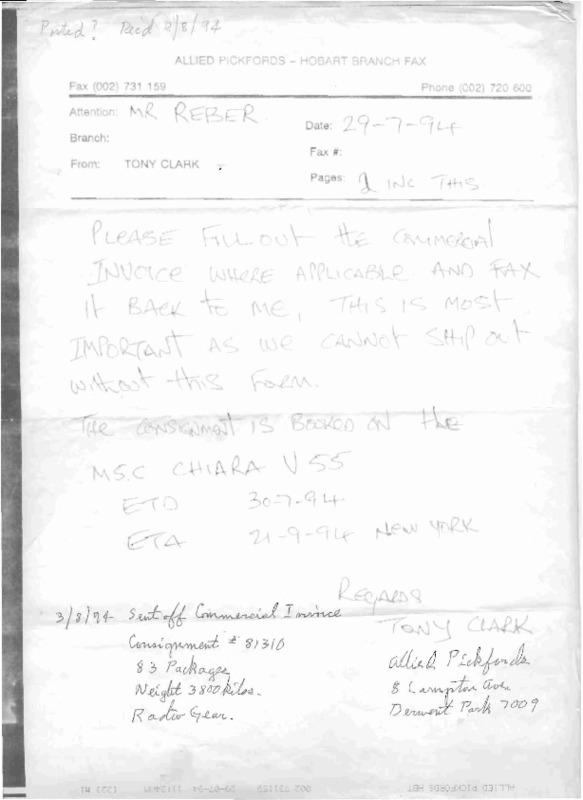 Posted? Rec'd 2/8/94
ALLIED PICKFORDS – HOBART BRANCH FAX
Fax (002) 731 159 Phone (002) 720 600
Attention: MR REBER
Date: 29-7-94
Branch:
Fax #:
From: TONY CLARK
Pages: 2 INC THIS
PLEASE FILL OUT the COMMERCIAL
INVOICE WHERE APPLICABLE AND FAX
It BACK to ME, THIS IS MOST
IMPORTANT AS WE CANNOT SHIP out
without this FORM.
THE CONSIGNMENT IS BOOKED ON tHE
MSC CHIARA V 55
ETD 30-7-94
ETA 21-9-94 NEW YORK
REGARDS
TONY CLARK
3/8/94 Sent off Commercial Invoice
Consignment # 81310
83 Packages
Weight 3800 kilos.
Radio Gear.
Allied Pickfords
8 Lampton Ave.
Derwent Park 7009
ALLIED PICKFORDS HBT 002 731159 29-07-94